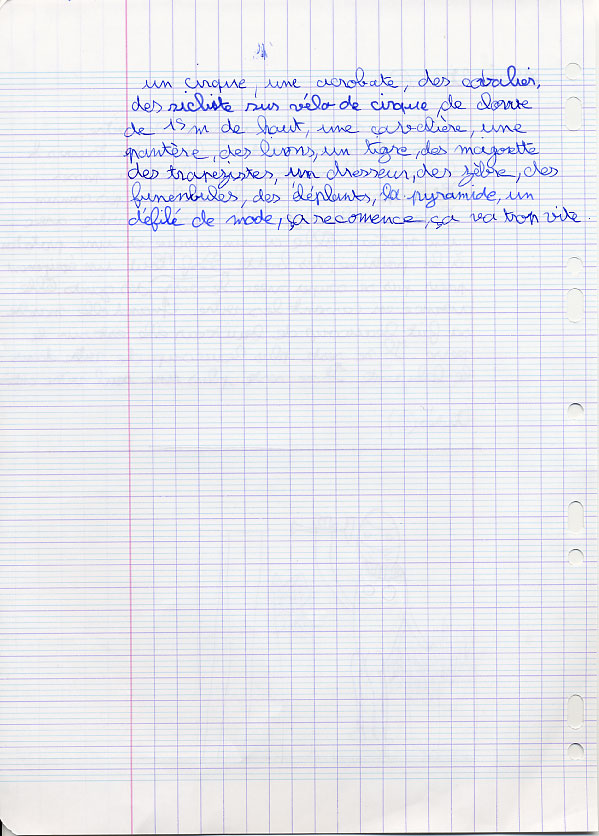 un cirque, une acrobate, des cavalier,
des sicliste sur vélo de cirque, de
de 15 m de haut, une cavalière, une
pantère, des lions, un tigre, des magorette
des trapezistes, un dresseur, des zèbre, des
funenbules, des éléphants, la pyramide, un
défilé de mode, ça recomence, ça va trop vite.